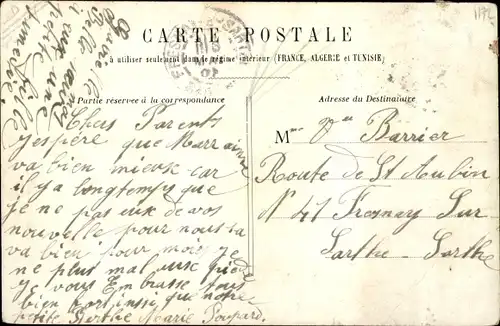 CARTE POSTALE
à utiliser seulement dans le régime intérieur (FRANCE, ALGERIE et TUNISIE)
Partie réservée à la correspondance
Adresse du Destinataire
Chers Parents
j'espère que Marraine
va bien mieux car
il y a longtemps que
je ne pas eux de vos
nouvelle pour nous ta
va bien pour moi je
ne plus mal aux
je vous Embrasse tous
bien fort ainsi que notre
petite Berthe Marie Poupard.
Mme Vve Barrier
Route de St Aubin
N 41 Fresnay Sur
Sarthe Sarthe
petite fille